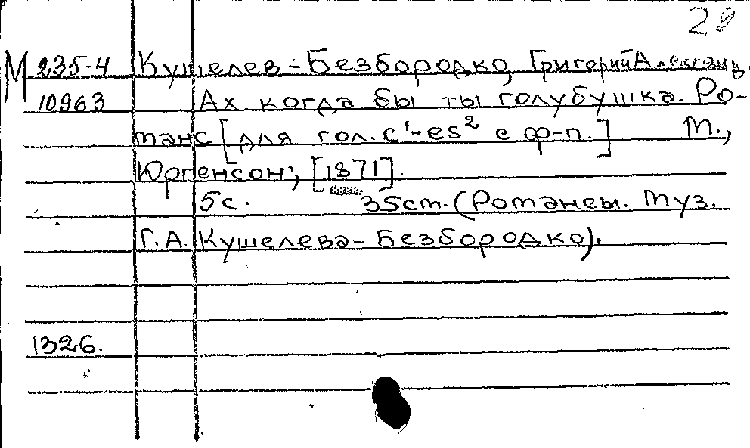 28
М 235-4 Кушелев-Безбородко, Григорий Александ.
10963 Ах когда бы ты голубушка. Ро-
манс [для гол. c¹-es² с ф-п.] М.,
Юргенсон, [1871].
5с. 35см. (Романсы. Муз.
Г.А. Кушелева-Безбородко).
1326.